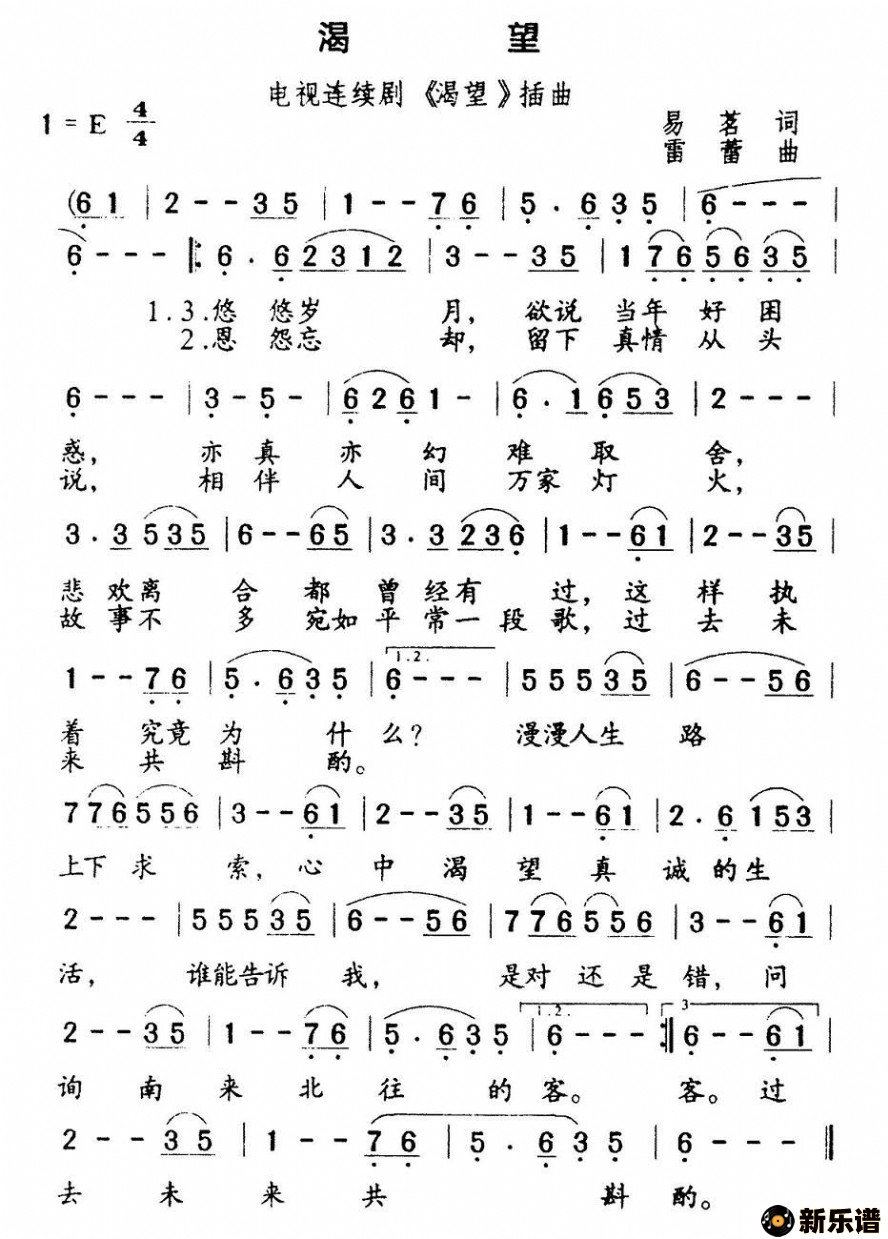 渴 望
电视连续剧《渴望》插曲
1 = E 4/4
易 茗 词
雷 蕾 曲
(6 1 | 2 - - 3 5 | 1 - - 7 6 | 5 . 6 3 5 | 6 - - - |
6 - - - |: 6 . 6 2 3 1 2 | 3 - - 3 5 | 1 7 6 5 6 3 5 |
1.3.悠 悠岁 月, 欲说 当年 好 困
2.恩 怨忘 却, 留下 真情 从 头
6 - - - | 3 - 5 - | 6 2 6 1 - | 6 . 1 6 5 3 | 2 - - - |
惑, 亦 真 亦 幻 难 取 舍,
说, 相 伴 人 间 万家 灯 火,
3 . 3 5 3 5 | 6 - - 6 5 | 3 . 3 2 3 6 | 1 - - 6 1 | 2 - - 3 5 |
悲 欢离 合 都 曾 经有 过, 这 样 执
故 事不 多 宛如 平 常一 段 歌, 过 去 未
1 - - 7 6 | 5 . 6 3 5 | 1.2. 6 - - - | 5 5 5 5 3 5 | 6 - - 5 6 |
着 究竟 为 什 么? 漫漫人生 路
来 共 斟 酌。
7 7 6 5 5 6 | 3 - - 6 1 | 2 - - 3 5 | 1 - - 6 1 | 2 . 6 1 5 3 |
上下 求 索, 心 中 渴 望 真 诚 的 生
2 - - - | 5 5 5 5 3 5 | 6 - - 5 6 | 7 7 6 5 5 6 | 3 - - 6 1 |
活, 谁能告诉 我, 是对 还 是 错, 问
2 - - 3 5 | 1 - - 7 6 | 5 . 6 3 5 | 1.2. 6 - - - :| 3 6 - - 6 1 |
询 南 来 北 往 的 客。 客。 过
2 - - 3 5 | 1 - - 7 6 | 5 . 6 3 5 | 6 - - - ||
去 未 来 共 斟 酌。
新乐谱